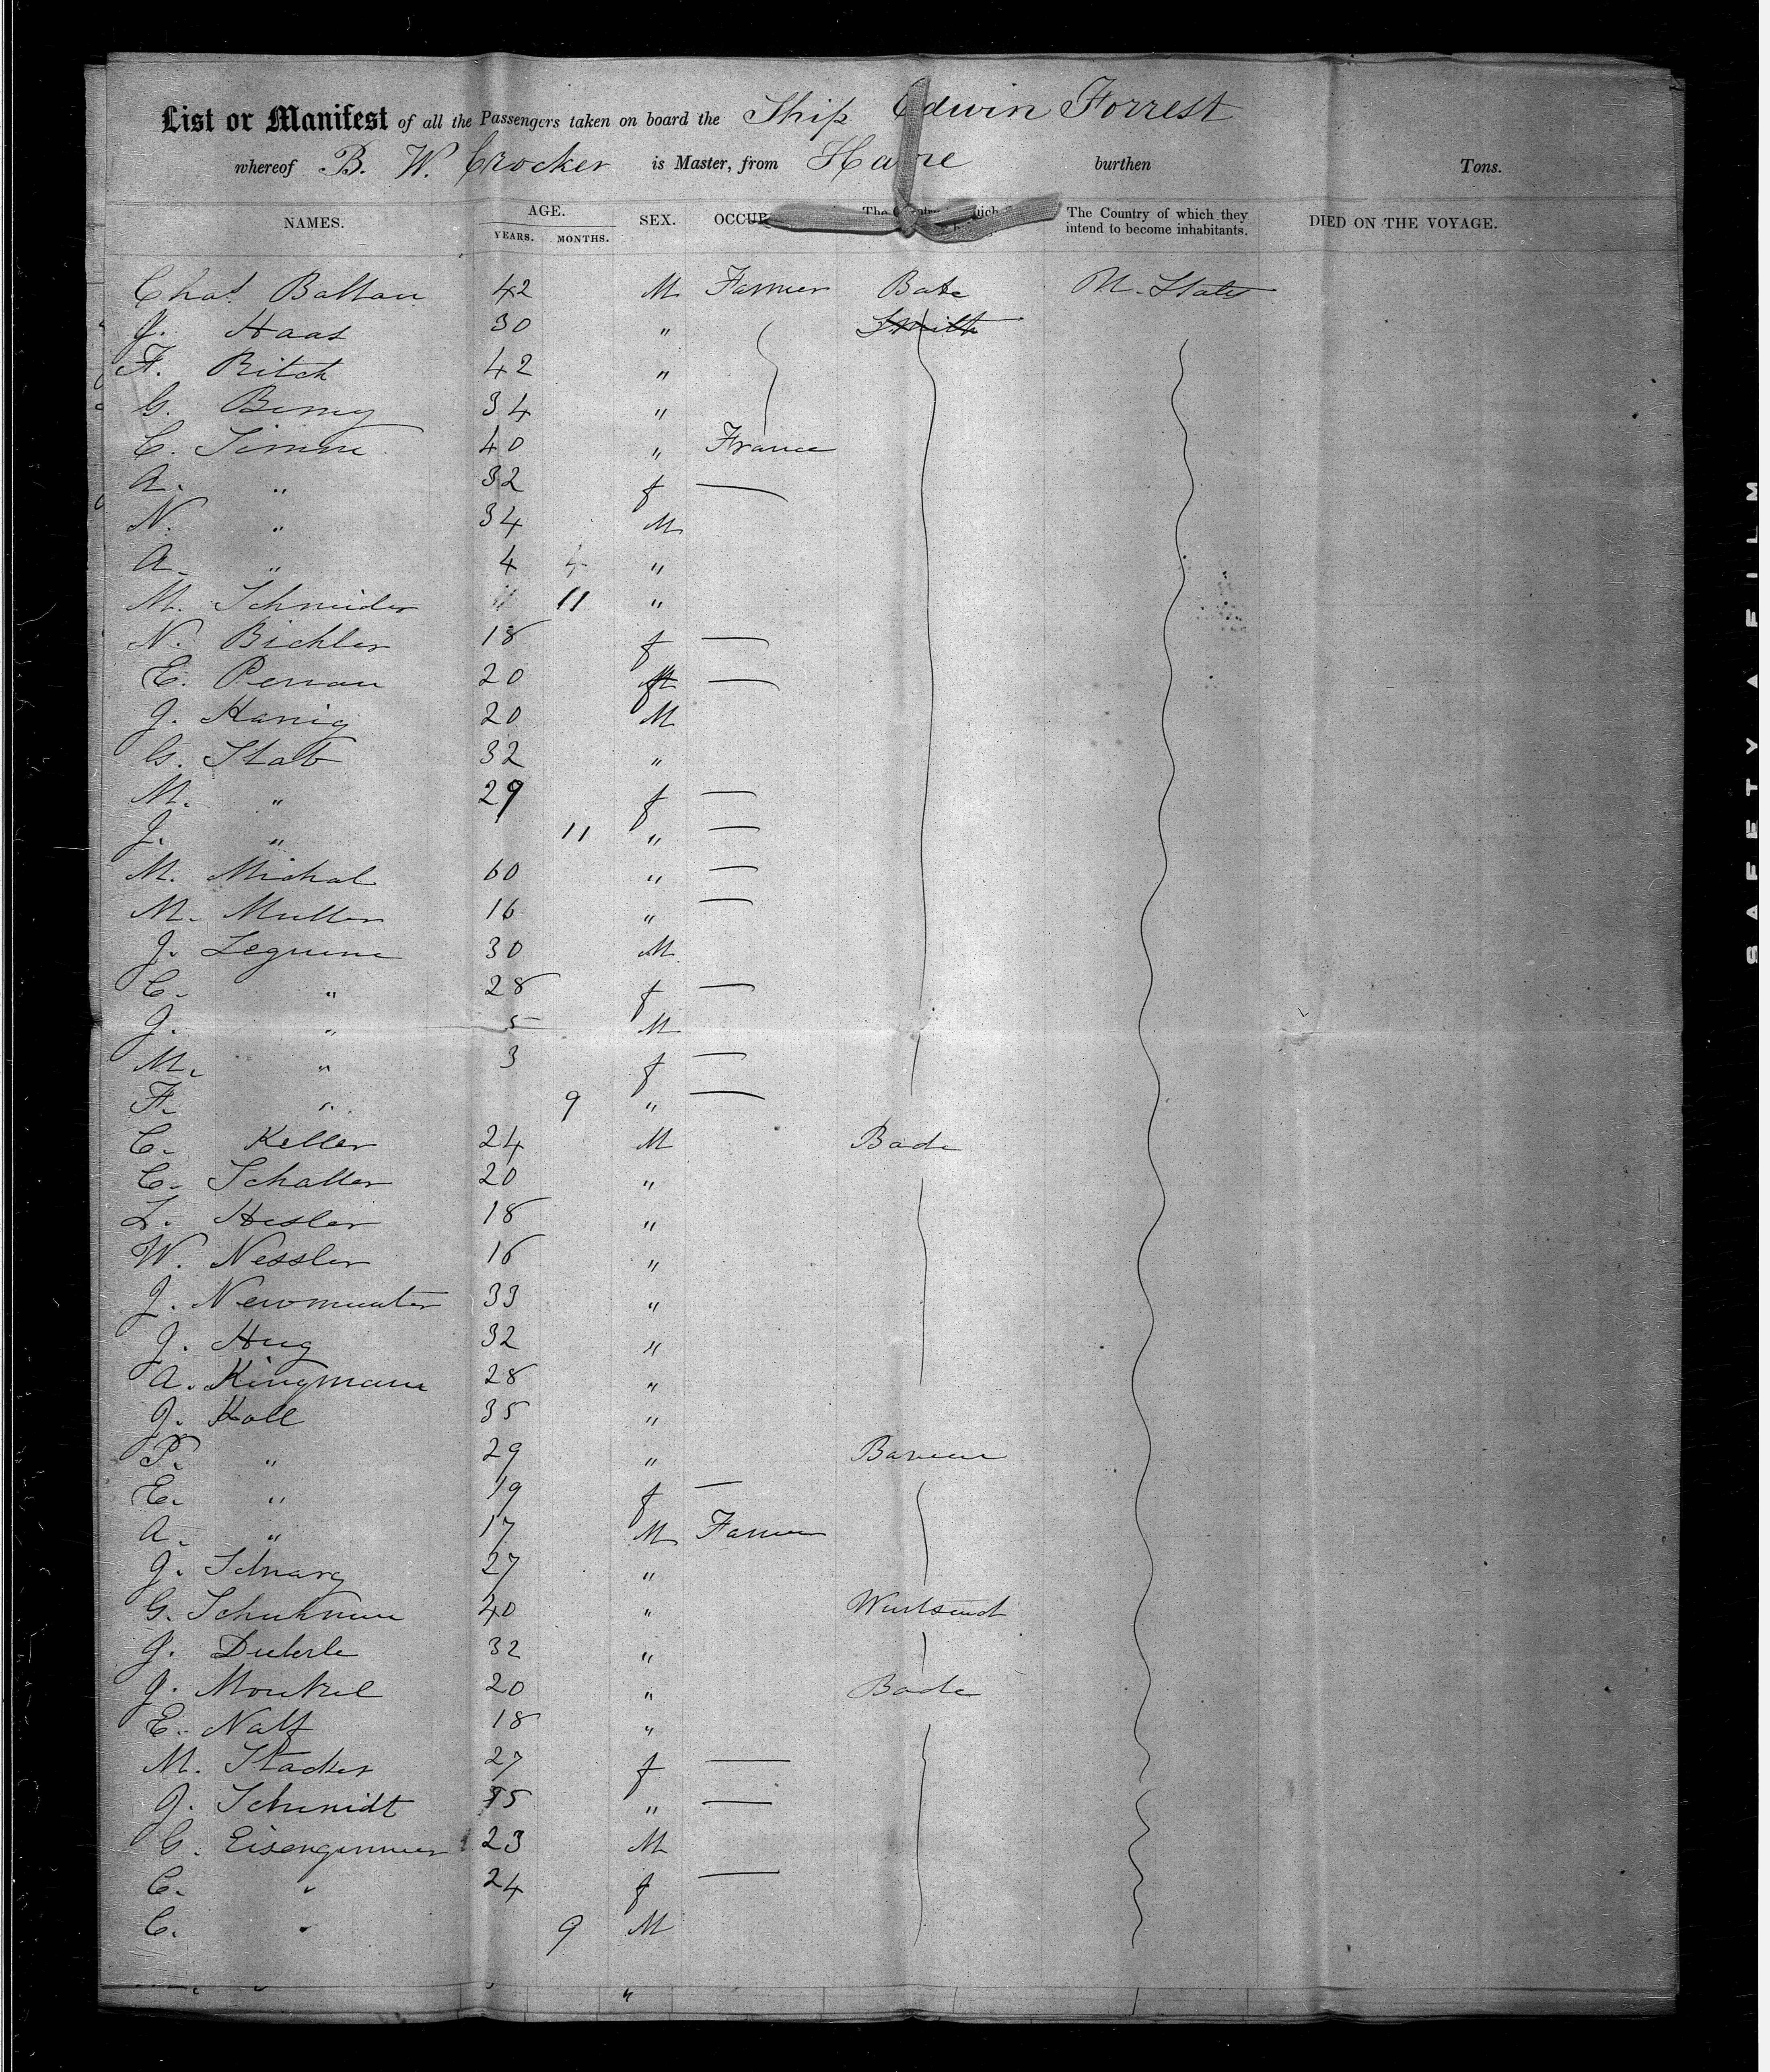 List or Manifest of all the Passengers taken on board the Ship Edwin Forrest
whereof B. W. Crocker is Master, from Havre burthen Tons.
NAMES. AGE. SEX. The Country of which they intend to become inhabitants. DIED ON THE VOYAGE.
YEARS. MONTHS.
Chas. 42 M Farmer Bade U. States
J. Haas 30 "
F. Ritch 42 "
G. 34 "
C. Simm 40 " France
A. " 32 f —
N. " 34 M
A. " 4 "
M. Schneider 11 "
N. Bichler 18 f —
E. 20 f —
J. Hanig 20 M
G. Stab 32 "
M. " 29 f —
J. " 11 " —
M. Michal 60 " —
M. Muller 16 " —
J. 30 M
C. " 28 f —
J. " 5 M
M. " 3 f —
F. " 9 " —
C. Keller 24 M Bade
C. Schaller 20 "
L. Hesler 18 "
W. Nessler 16 "
J. 33 "
J. Hug 32 "
A. Kingmann 28 "
J. Koll 35 "
P. " 29 "
E. " 19 f —
A. " 17 M Farmer
J. 27 "
G. 40 "
J. Dieterle 32 "
J. 20 " Bade
E. Nalf 18 "
M. Stacker 27 f —
J. Schmidt " —
G. 23 M
C. " 24 f —
C. " 9 M
"
SAFETY A FILM